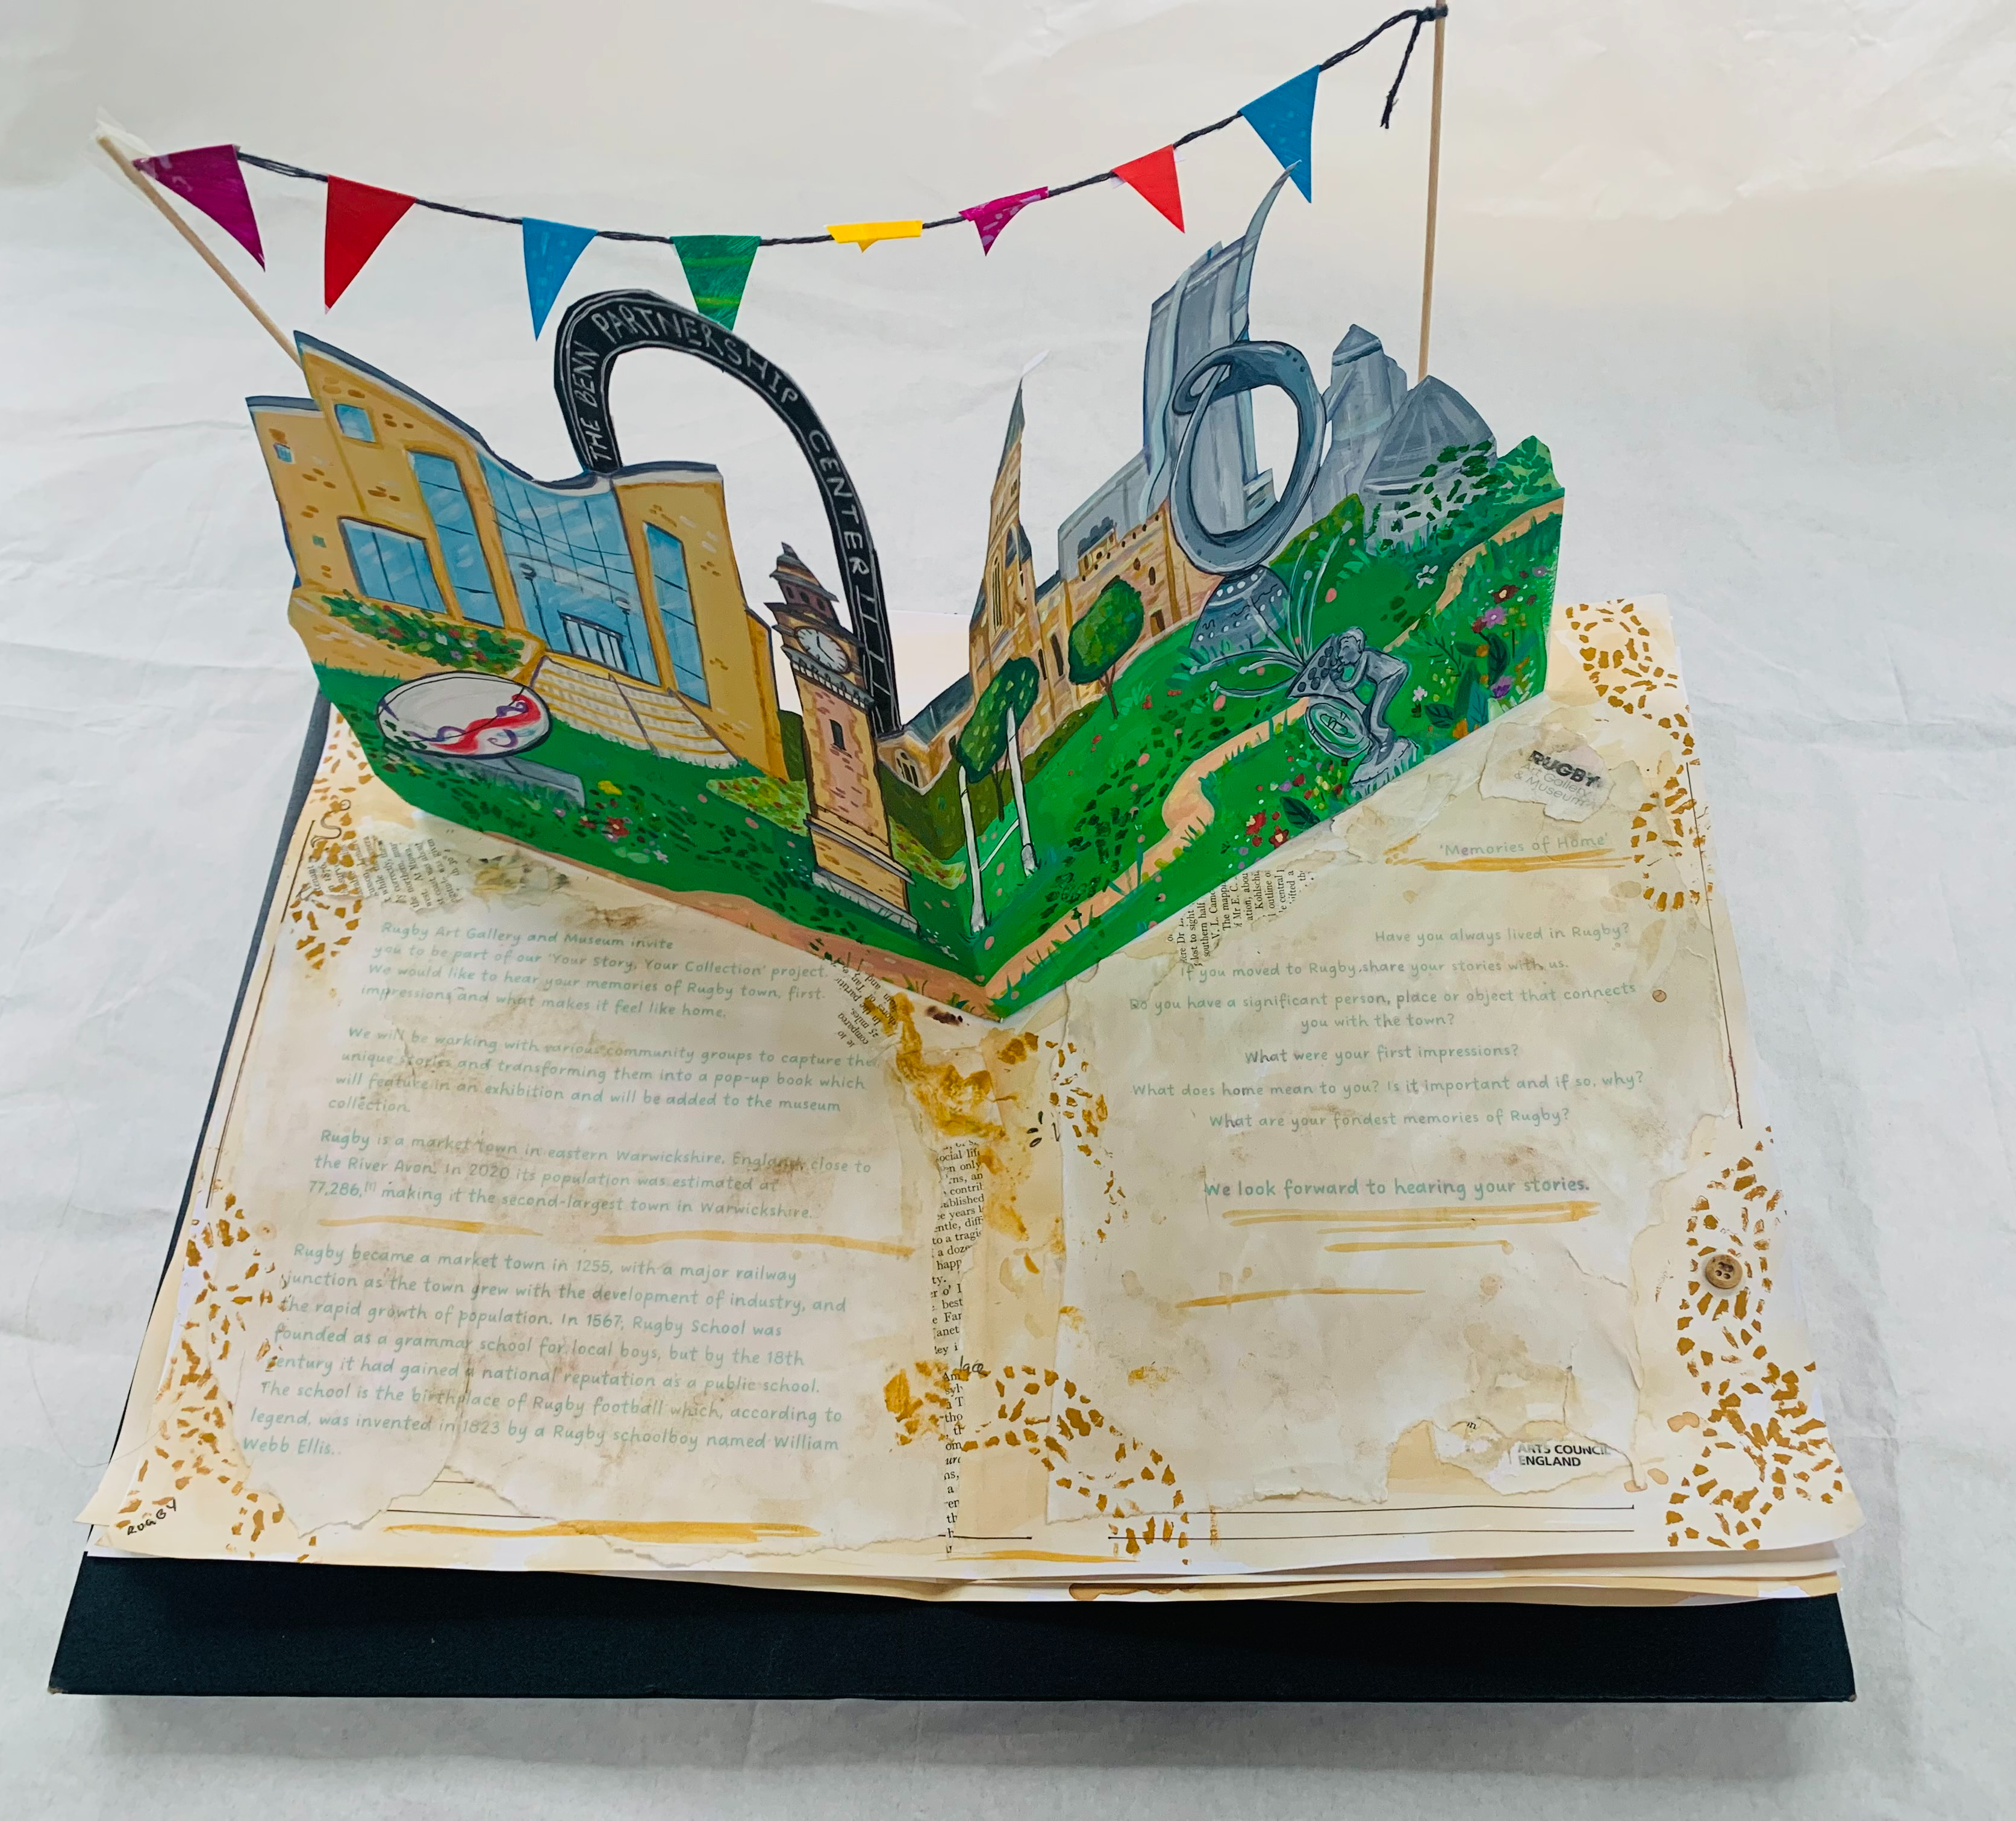 THE BENN PARTNERSHIP CENTER
Rugby Art Gallery and Museum invite
you to be part of our 'Your Story, Your Collection' project.
We would like to hear your memories of Rugby town, first
impressions and what makes it feel like home.
We will be working with various community groups to capture the
unique stories and transforming them into a pop-up book which
will feature in an exhibition and will be added to the museum
collection.
Rugby is a market town in eastern Warwickshire, England, close to
the River Avon. In 2020 its population was estimated at
77,286,[1] making it the second-largest town in Warwickshire.
Rugby became a market town in 1255, with a major railway
junction as the town grew with the development of industry, and
the rapid growth of population. In 1567, Rugby School was
founded as a grammar school for local boys, but by the 18th
century it had gained a national reputation as a public school.
The school is the birthplace of Rugby football which, according to
legend, was invented in 1823 by a Rugby schoolboy named William
Webb Ellis.
RUGBY
RUGBY
Art Gallery
& Museum
'Memories of Home'
Have you always lived in Rugby?
If you moved to Rugby, share your stories with us.
Do you have a significant person, place or object that connects
you with the town?
What were your first impressions?
What does home mean to you? Is it important and if so, why?
What are your fondest memories of Rugby?
We look forward to hearing your stories.
ARTS COUNCIL
ENGLAND